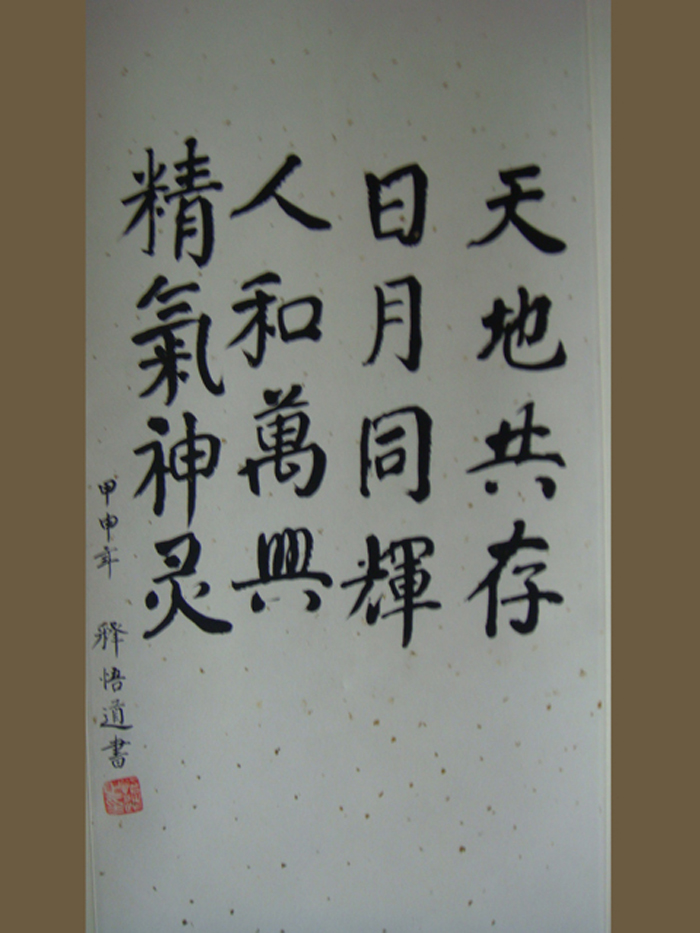 天地共存
日月同輝
人和萬興
精氣神灵
甲申年 釋悟道書